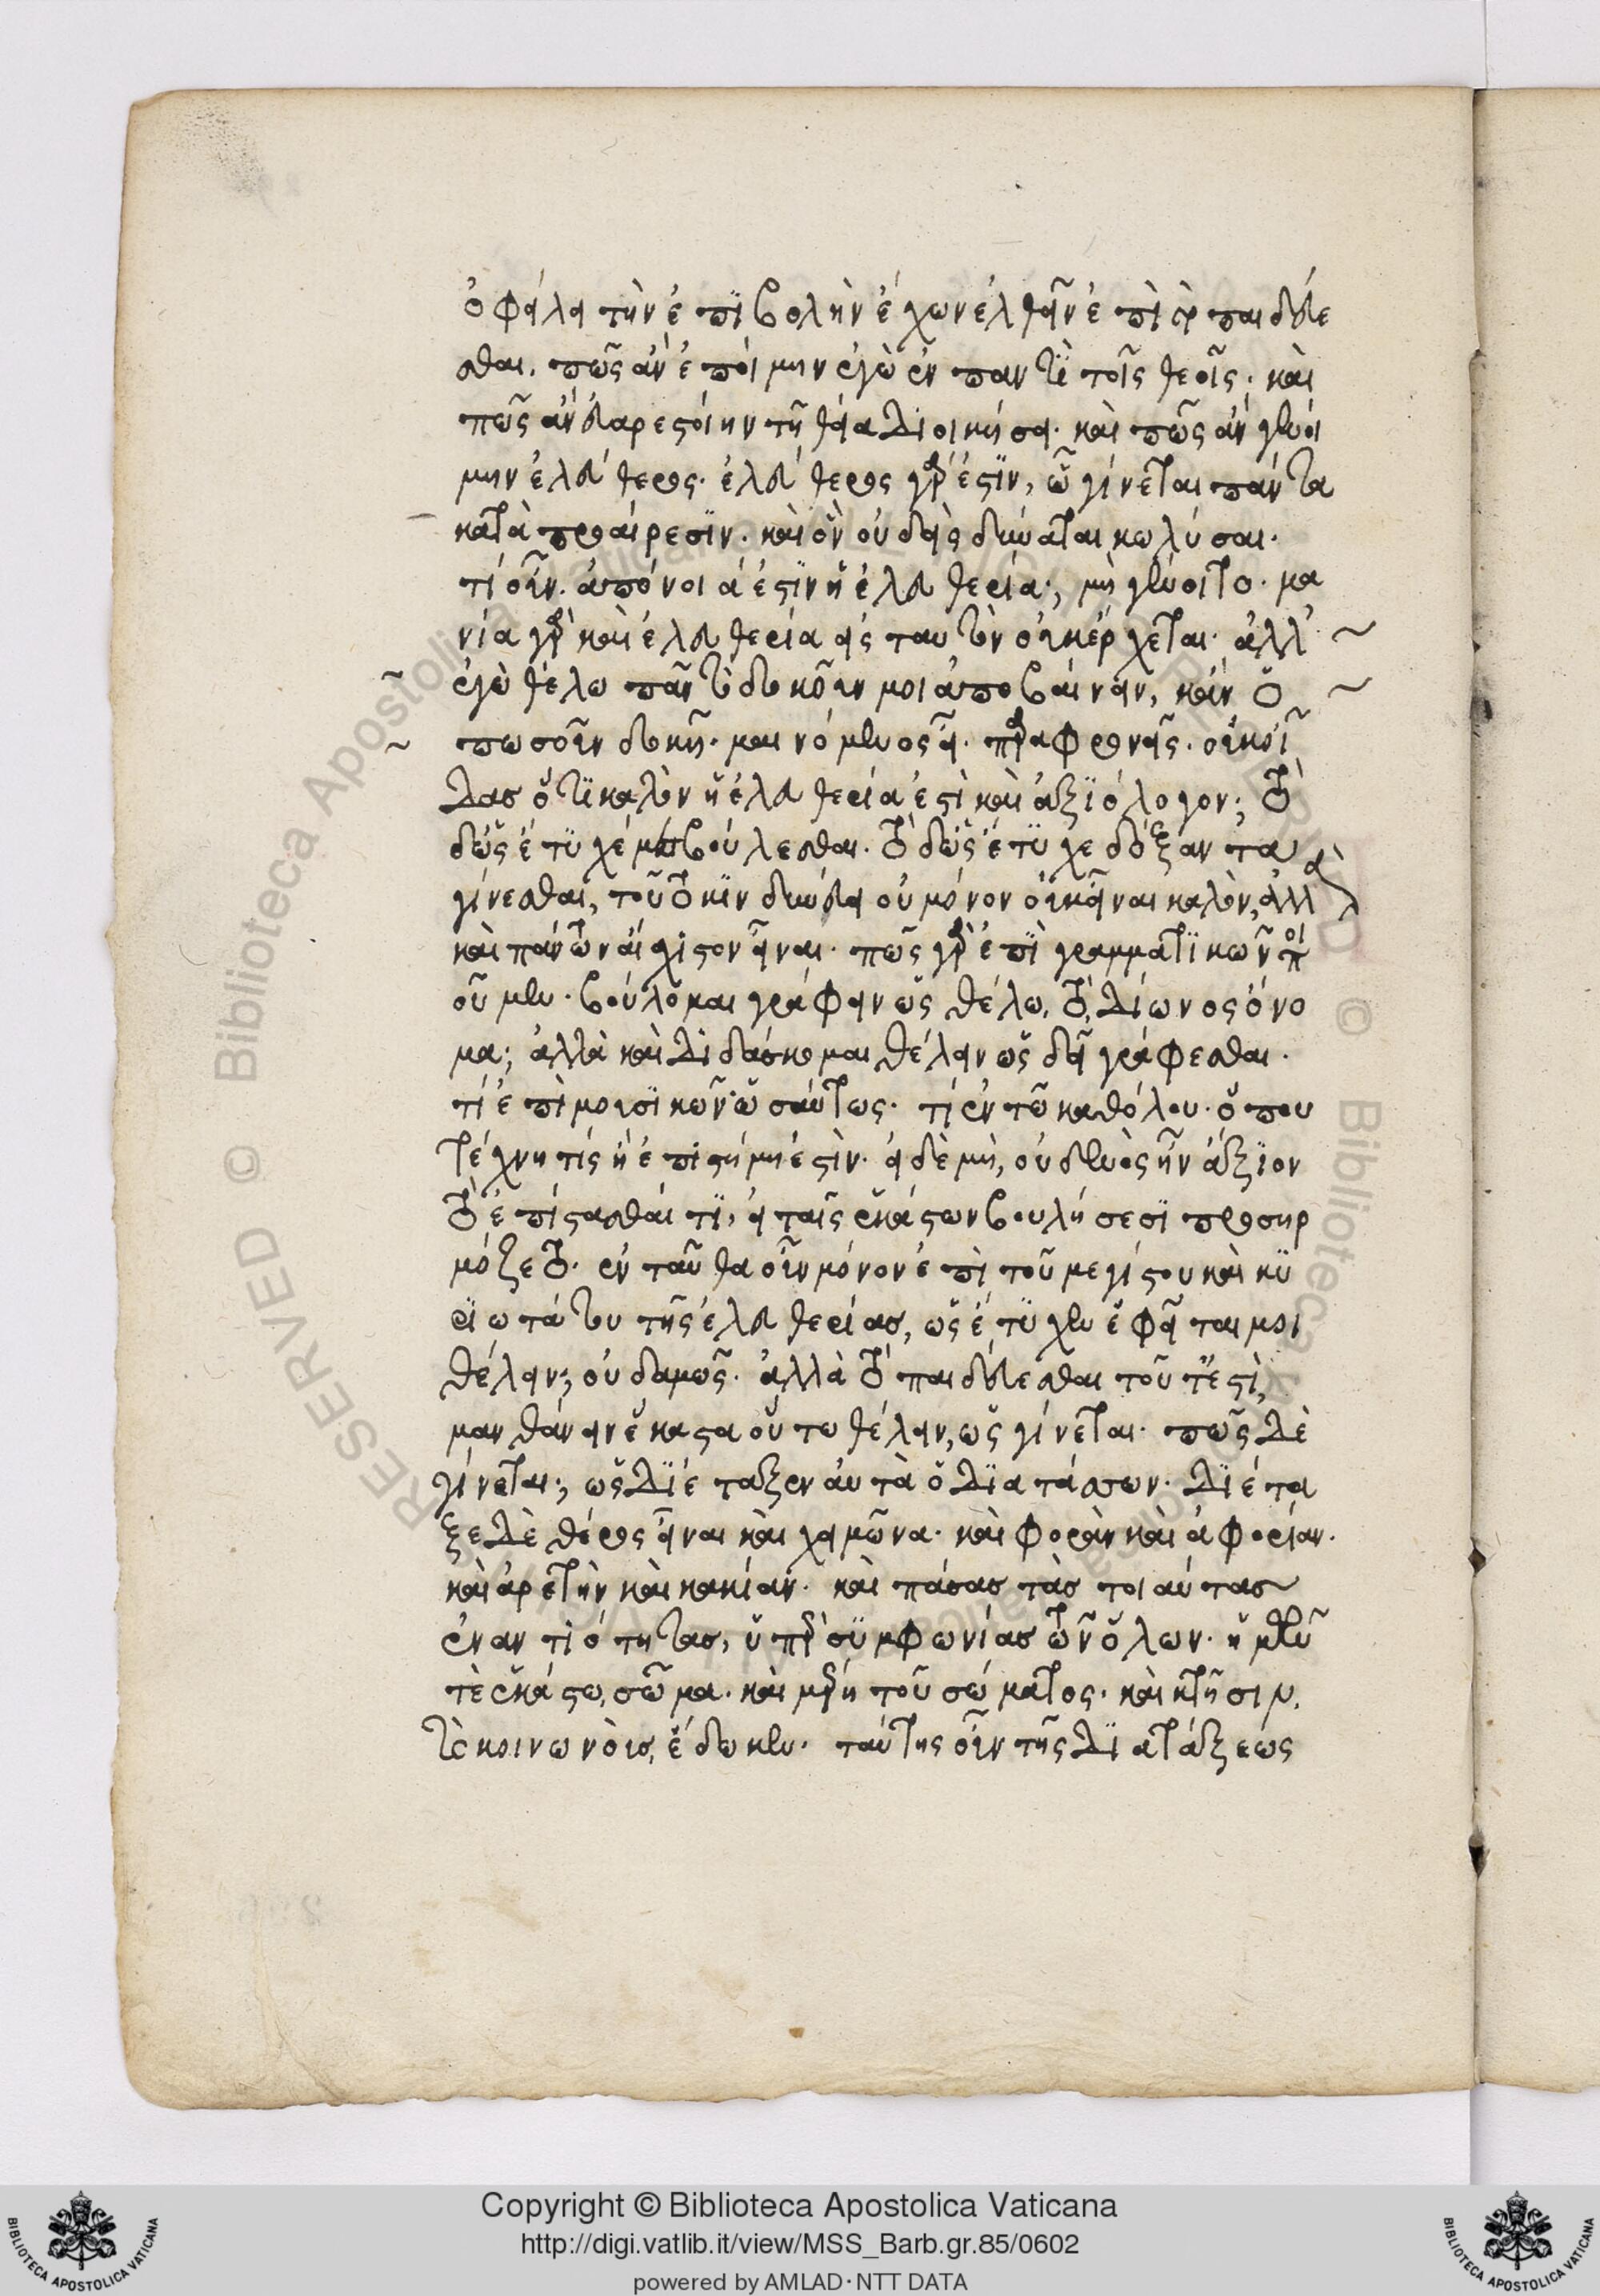 ὀφείλει τὴν ἐπιβολὴν ἔχων ἐλθεῖν ἐπὶ τὸ παιδεύε
σθαι. πῶς ἂν ἑποίμην ἐγὼ ἐν παντὶ τοῖς θεοῖς. καὶ
πῶς ἂν εὐαρεστοίην τῇ θείᾳ διοικήσει. καὶ πῶς ἂν γενοί
μην ἐλεύθερος. ἐλεύθερος γάρ ἐστιν, ᾧ γίνεται πάντα
κατὰ προαίρεσιν. καὶ ὃν οὐδεὶς δύναται κωλύσαι.
τί οὖν. ἀπόνοιά ἐστιν ἡ ἐλευθερία; μὴ γένοιτο. μα
νία γὰρ καὶ ἐλευθερία εἰς ταυτὸν οὐκ ἔρχεται. ἀλλ'
ἐγὼ θέλω πᾶν τὸ δοκοῦν μοι ἀποβαίνειν, κἂν ὅ
πως οὖν δοκῇ. μαινόμενος εἶ. παραφρονεῖς. οὐκ οἶ
δας ὅτι καλὸν ἡ ἐλευθερία ἐστὶ καὶ ἀξιόλογον; τὸ
δ' ὡς ἔτυχέ με βούλεσθαι. τὸ δ' ὡς ἔτυχε δόξαντα
γίνεσθαι, τοῦτο κινδυνεύει οὐ μόνον οὐκ εἶναι καλὸν, ἀλλὰ
καὶ πάντων αἴσχιστον εἶναι. πῶς γὰρ ἐπὶ γραμματικῶν ποι
οῦμεν. βούλομαι γράφειν ὡς θέλω, τὸ Δίωνος ὄνο
μα; ἀλλὰ καὶ διδάσκομαι θέλειν ὡς δεῖ γράφεσθαι.
τί ἐπὶ μουσικῶν· ὡσαύτως. τί ἐν τῷ καθόλου. ὅπου
τέχνη τίς ἢ ἐπιστήμη ἐστίν. εἰ δὲ μή, οὐδενὸς ἦν ἄξιον
τὸ ἐπίστασθαί τι, εἰ ταῖς ἑκάστων βουλήσεσι προσηρ
μόζετο. ἐνταῦθα οὖν μόνον ἐπὶ τοῦ μεγίστου καὶ κυ
ριωτάτου τῆς ἐλευθερίας, ὡς ἔτυχεν ἐφεῖταί μοι
θέλειν; οὐδαμῶς. ἀλλὰ τὸ παιδεύεσθαι τοῦτ' ἐστὶ,
μανθάνειν ἕκαστα οὕτω θέλειν, ὡς γίνεται. πῶς δὲ
γίνεται; ὡς διέταξεν αὐτὰ ὁ διατάσσων. διέτα
ξε δὲ θέρος εἶναι καὶ χειμῶνα. καὶ φορὰν καὶ ἀφορίαν.
καὶ ἀρετὴν καὶ κακίαν. καὶ πάσας τὰς τοιαύτας
ἐναντιότητας, ὑπὲρ συμφωνίας τῶν ὅλων. ἡμῶν
τε ἑκάστῳ, σῶμα. καὶ μέρη τοῦ σώματος. καὶ κτῆσιν.
καὶ κοινωνοὺς, ἔδωκεν. ταύτης οὖν τῆς διατάξεως